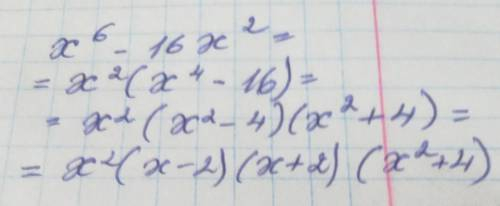 x⁶ - 16x² =
= x²(x⁴ - 16) =
= x²(x² - 4)(x² + 4) =
= x²(x - 2)(x + 2)(x² + 4)